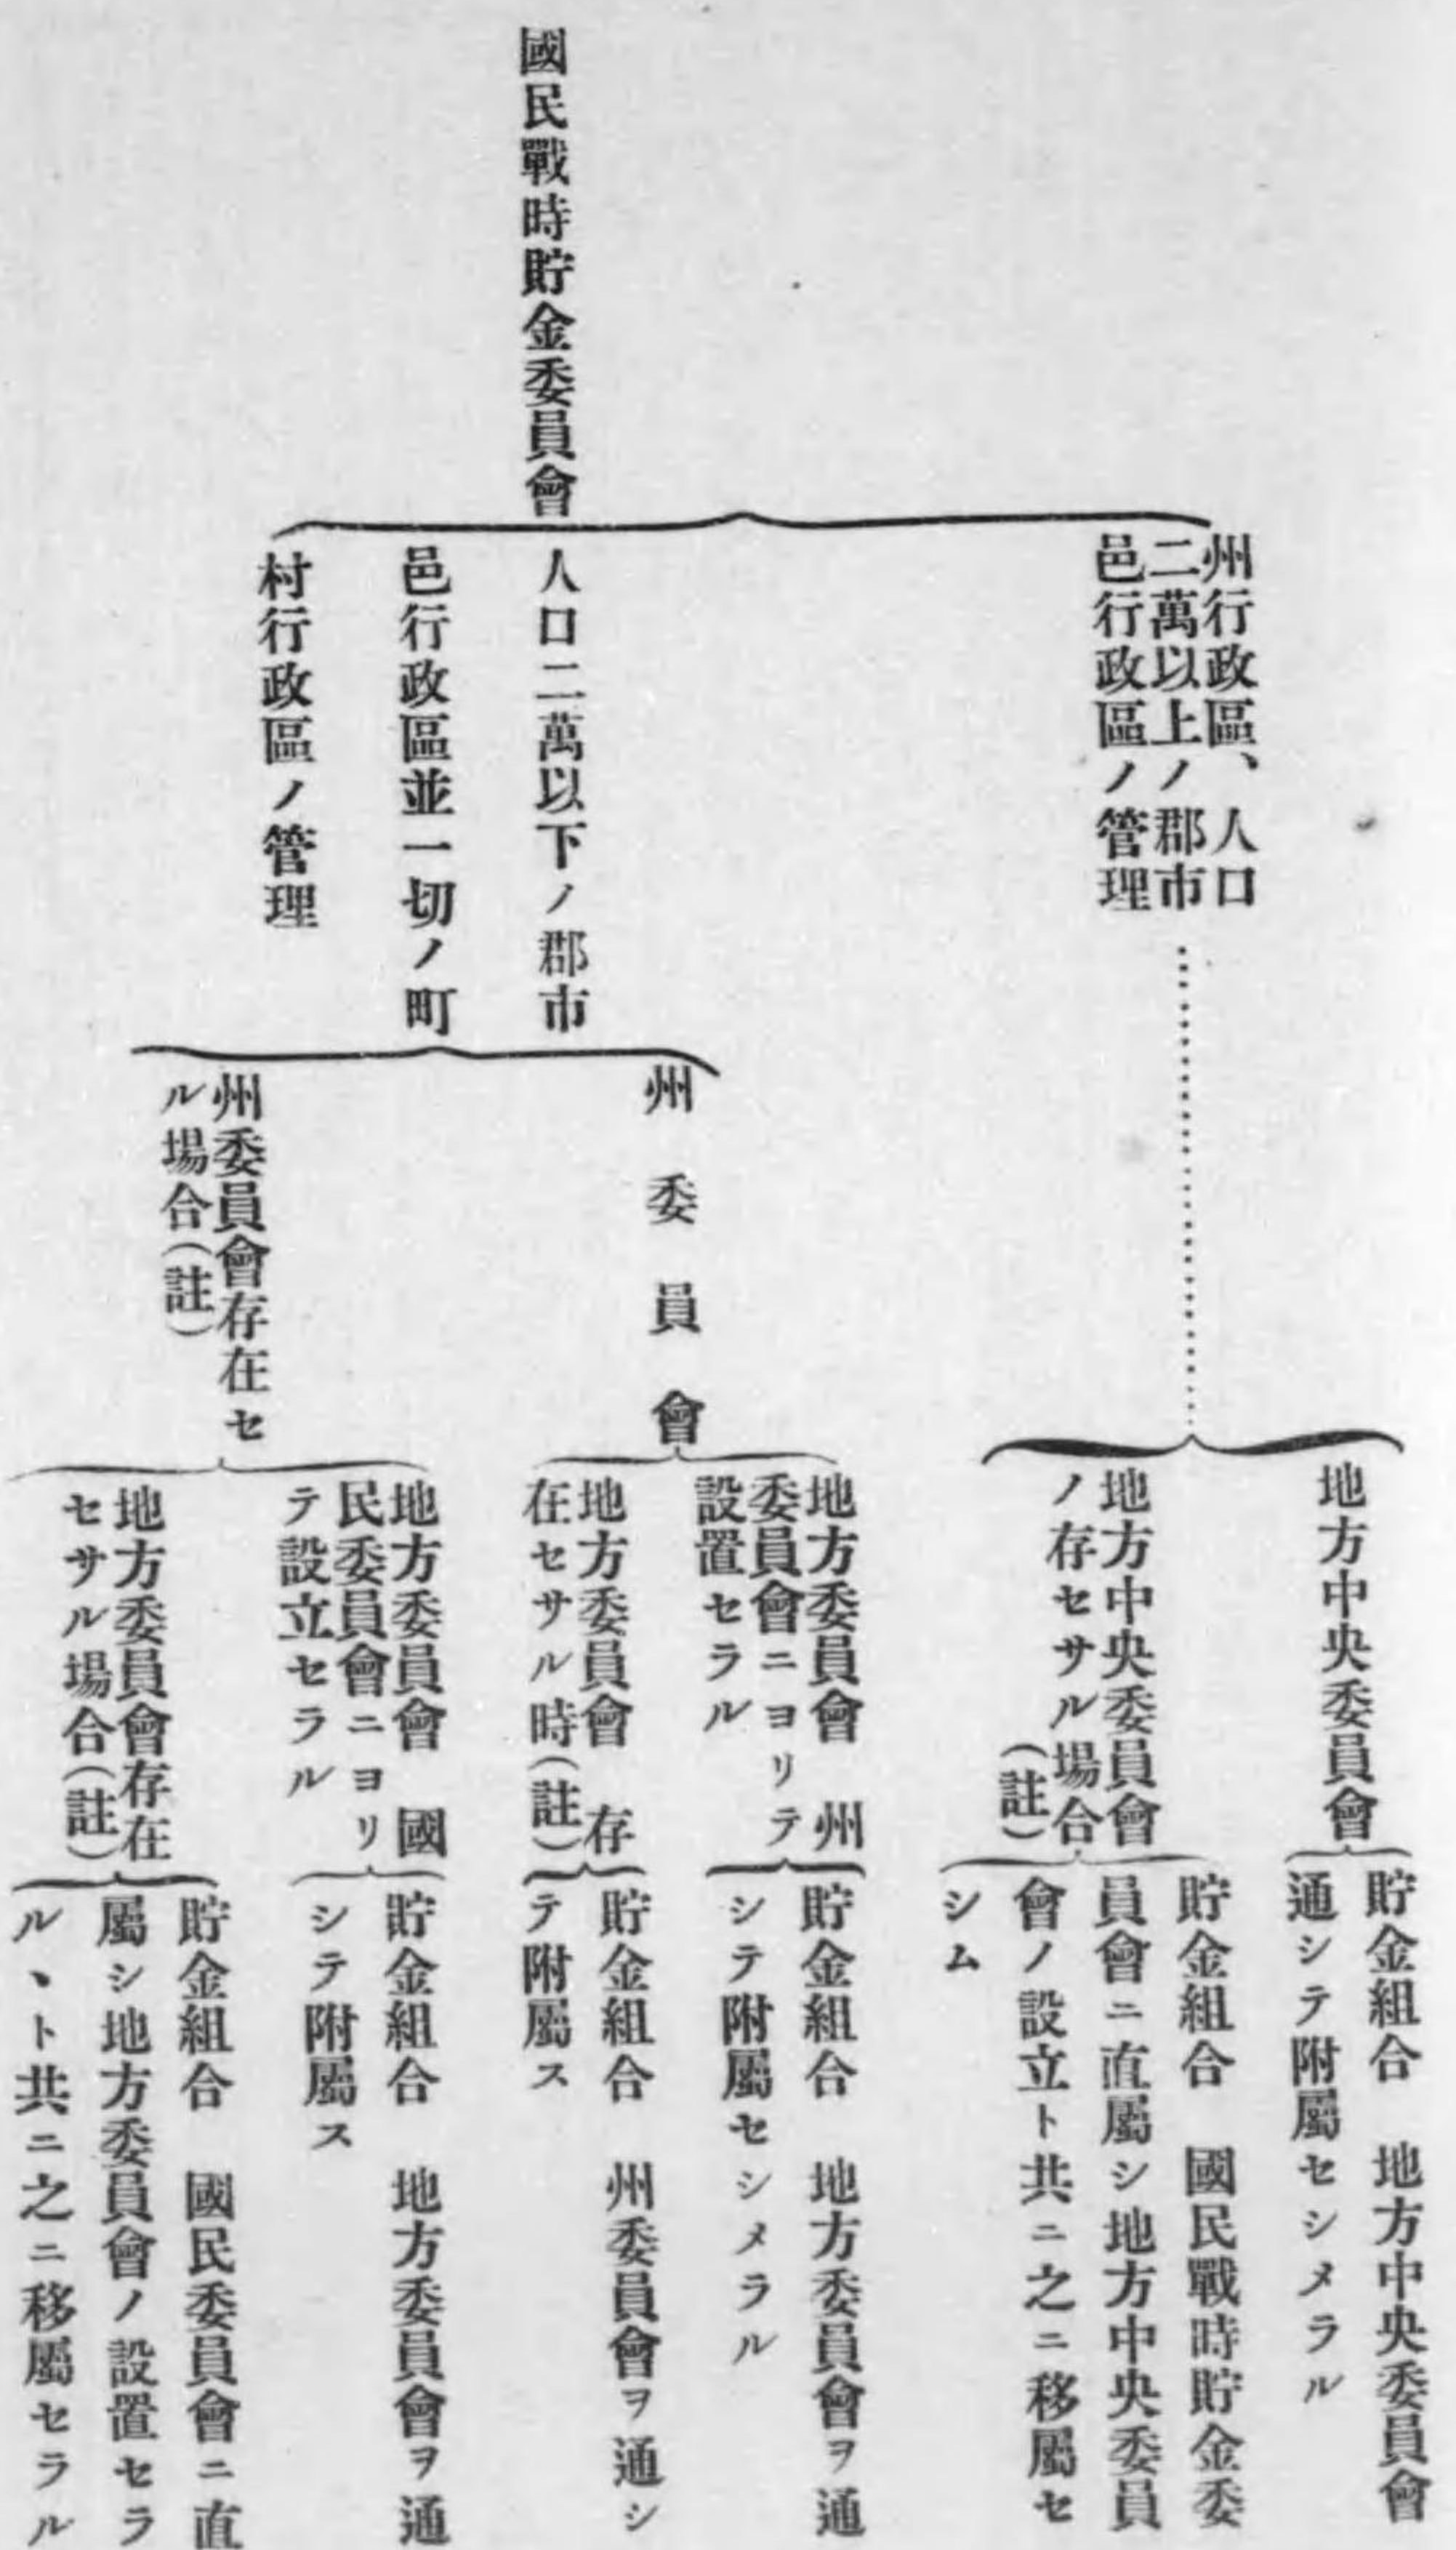 國民戰時貯金委員會
州行政區、人口
二萬以上ノ郡市
邑行政區ノ管理
地方中央委員會
貯金組合 地方中央委員會
通シテ附屬セシメラル
地方中央委員會
ノ存セサル場合
(註)
貯金組合 國民戰時貯金委
員會ニ直屬シ地方中央委員
會ノ設立ト共ニ之ニ移屬セ
シム
人口二萬以下ノ郡市
邑行政區並一切ノ町
村行政區ノ管理
州委員會
地方委員會 州
委員會ニヨリテ
設置セラル
貯金組合 地方委員會ヲ通
シテ附屬セシメラル
地方委員會 存
在セサル時(註)
貯金組合 州委員會ヲ通シ
テ附屬ス
州委員會存在セ
ル場合(註)
地方委員會 國
民委員會ニヨリ
テ設立セラル
貯金組合 地方委員會ヲ通
シテ附屬ス
地方委員會存在
セサル場合(註)
貯金組合 國民委員會ニ直
屬シ地方委員會ノ設置セラ
ルヽト共ニ之ニ移屬セラル